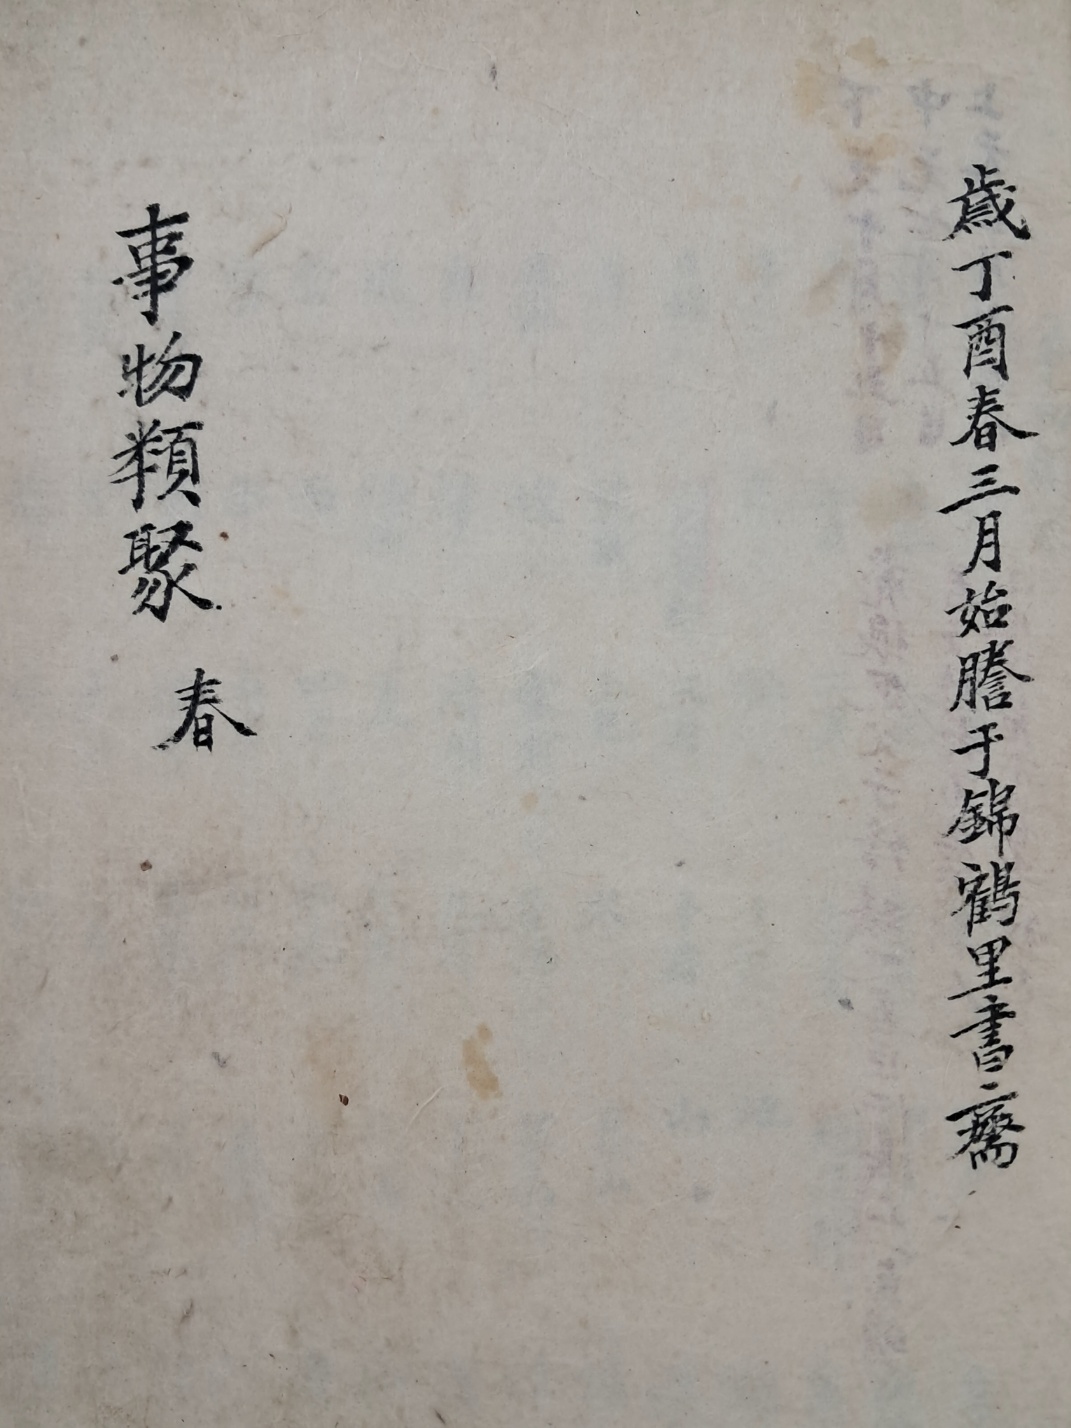 歲丁酉春三月始謄于錦鶴里書齋
事物類聚 春